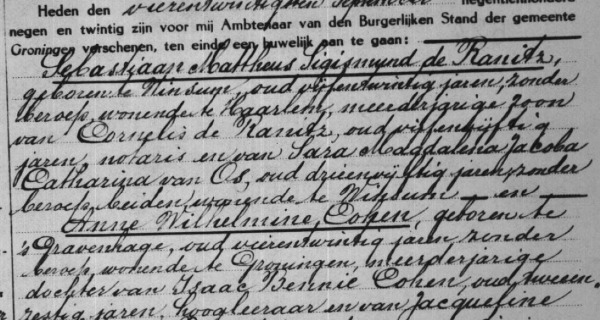 Heden den vierentwintigsten September negentienhonderd
negen en twintig zijn voor mij Ambtenaar van den Burgerlijken Stand der gemeente
Groningen verschenen, ten einde een huwelijk aan te gaan:
Sebastiaan Mattheus Sigismund de Ranitz,
geboren te Winsum, oud vijfentwintig jaren, zonder
beroep, wonende te Haarlem, meerderjarige zoon
van Cornelis de Ranitz, oud vijfenvijftig
jaren, notaris en van Sara Magdalena Jacoba
Catharina van Os, oud drieenvijftig jaren, zonder
beroep, beiden wonende te Winsum en
Anne Wilhelmine Cohen, geboren te
's Gravenhage, oud vierentwintig jaren, zonder
beroep, wonende te Groningen, meerderjarige
dochter van Isaac Bennie Cohen, oud tweeen-
zestig jaren, hoogleeraar en van Jacqueline